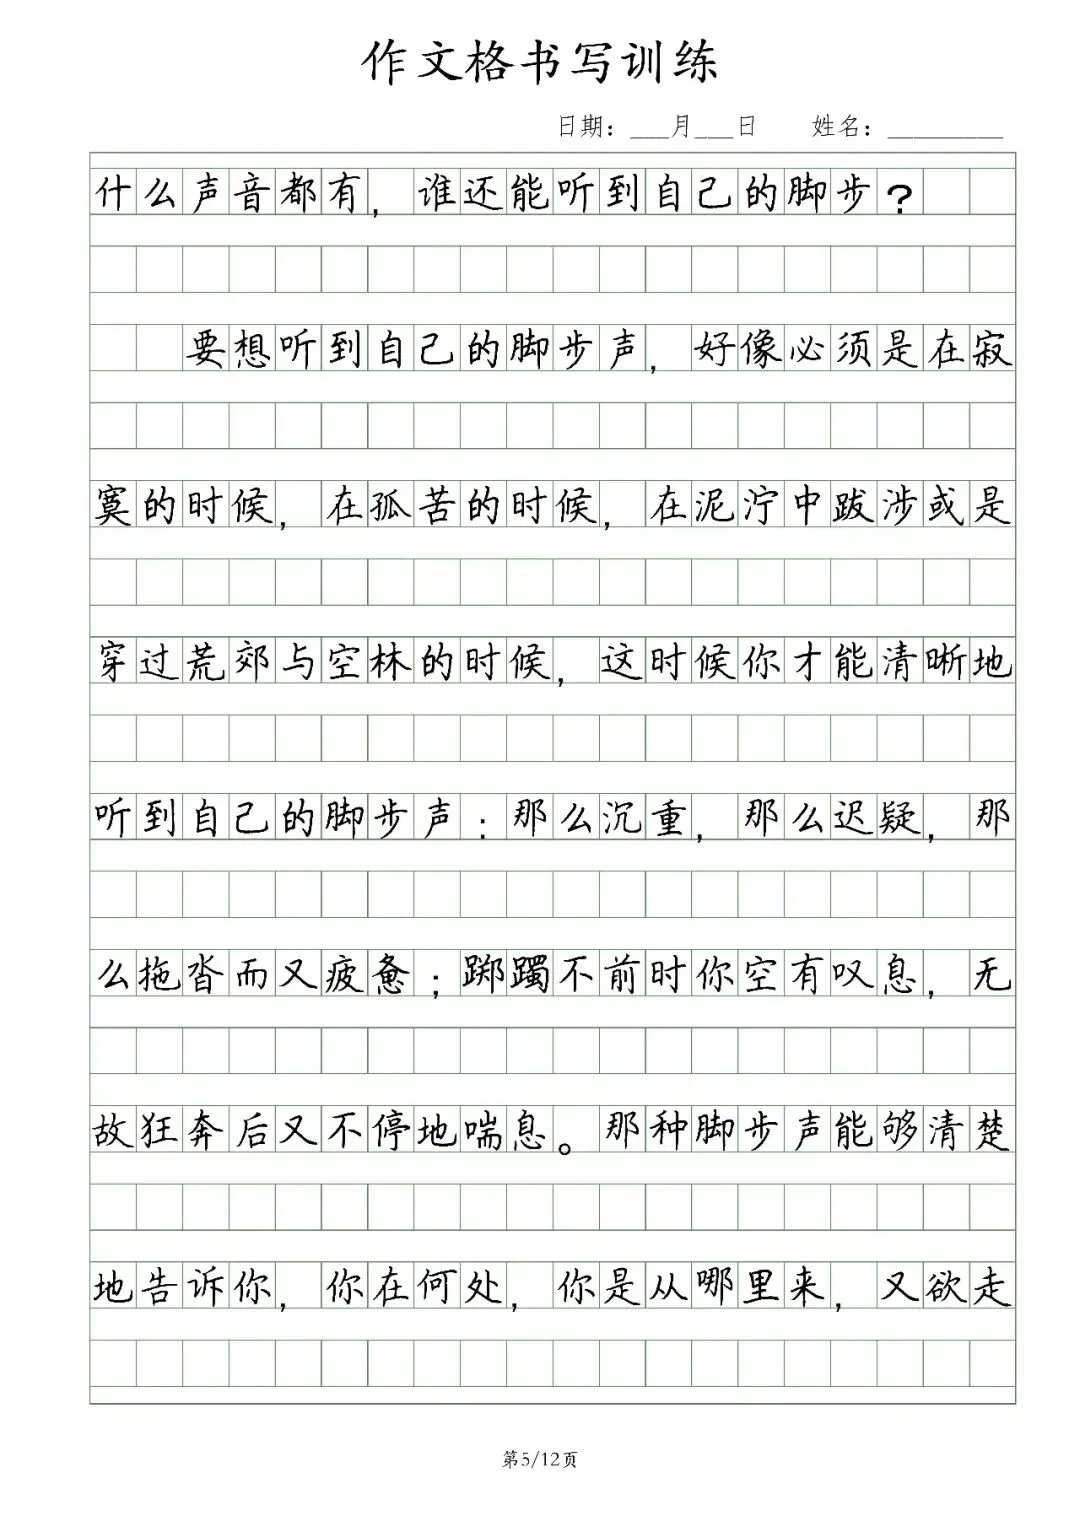 作文格书写训练
日期：___月___日 姓名：_________
什么声音都有，谁还能听到自己的脚步？
要想听到自己的脚步声，好像必须是在寂
寞的时候，在孤苦的时候，在泥泞中跋涉或是
穿过荒郊与空林的时候，这时候你才能清晰地
听到自己的脚步声：那么沉重，那么迟疑，那
么拖沓而又疲惫；踯躅不前时你空有叹息，无
故狂奔后又不停地喘息。那种脚步声能够清楚
地告诉你，你在何处，你是从哪里来，又欲走
第5/12页